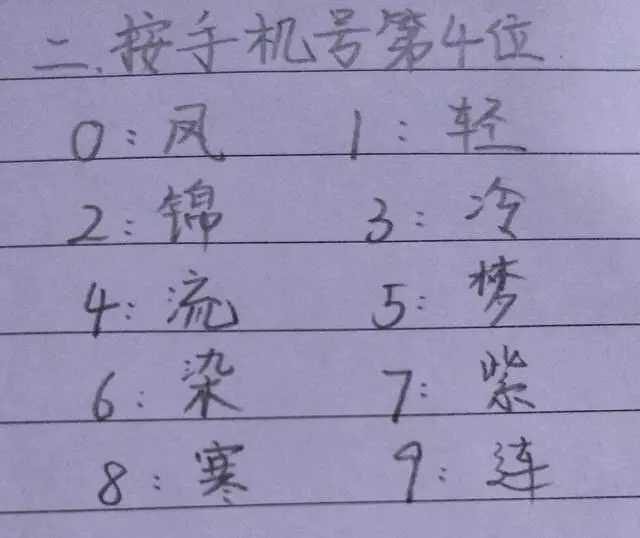 二.按手机号第4位
0：凤 1：轻
2：锦 3：冷
4：流 5：梦
6：染 7：紫
8：寒 9：连